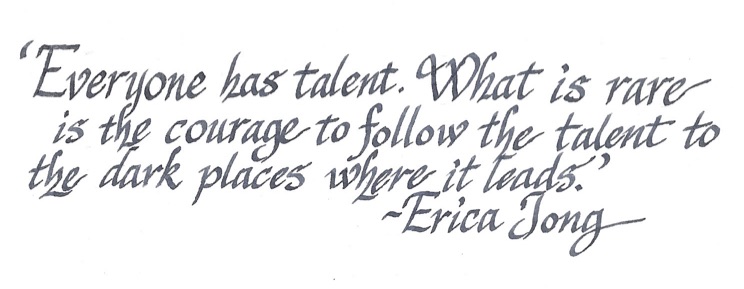 'Everyone has talent. What is rare
is the courage to follow the talent to
the dark places where it leads.'
~Erica Jong